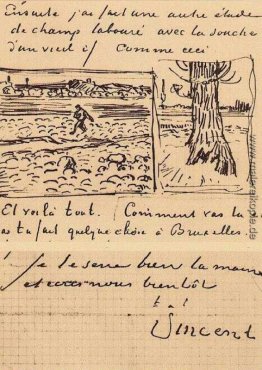 Ensuite j'ai fait une autre étude
de champ labouré avec la souche
d'un vieil if Comme ceci
Et voilà tout. Comment vas tu
as tu fait quelque chose à Bruxelles
Je te serre bien la main
et nous bientôt
t. à
Vincent